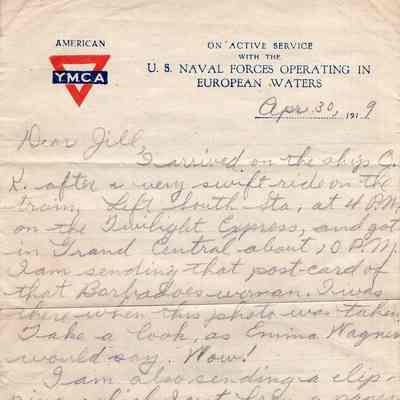 AMERICAN
YMCA
ON ACTIVE SERVICE
WITH THE
U. S. NAVAL FORCES OPERATING IN
EUROPEAN WATERS
Apr. 30, 1919
Dear Jill,
I arrived on the ship O.
K. after a very swift ride on the
train, Left South Sta, at 4 P.M.
on the Twilight Express, and got
in Grand Central about 10 P.M.
I am sending that post-card of
that Barbadoes woman. I was
there when this photo was taken.
Take a look, as Emma Wagner
would say. Wow!
I am also sending a clip-